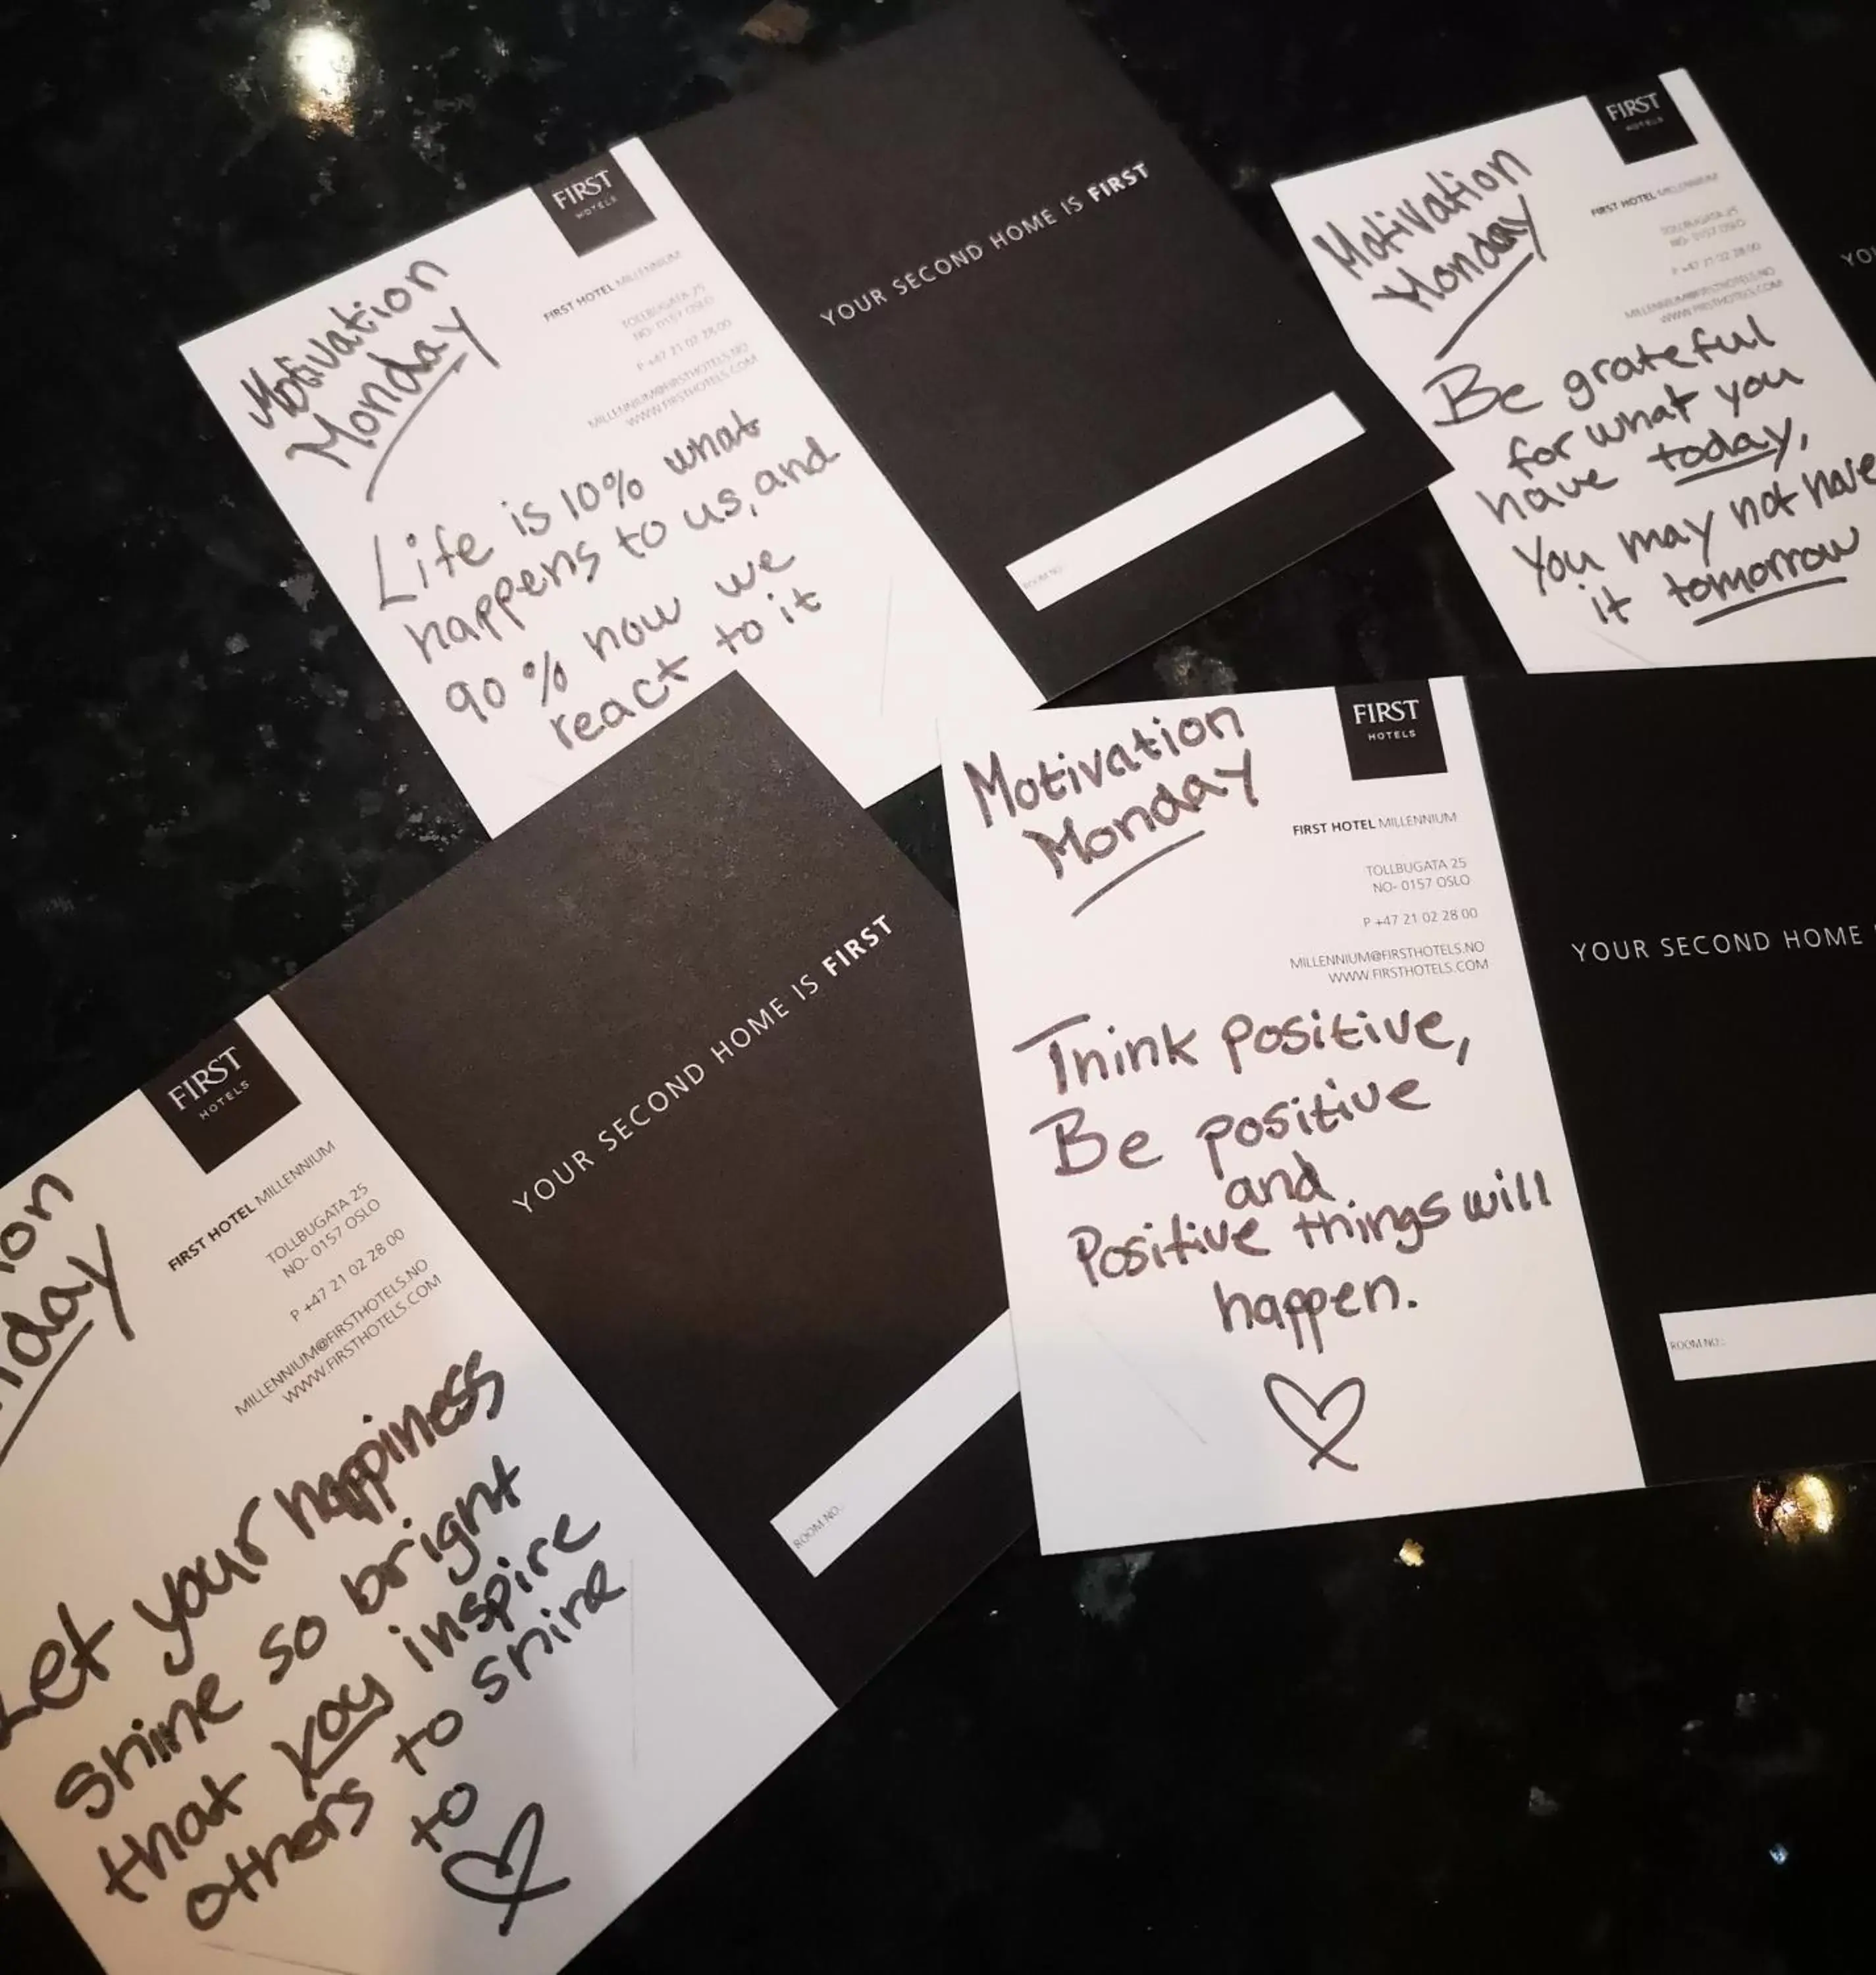 FIRST
HOTELS
Motivation
Monday
FIRST HOTEL MILLENNIUM
TOLLBUGATA 25
NO- 0157 OSLO
P +47 21 02 28 00
MILLENNIUM@FIRSTHOTELS.NO
WWW.FIRSTHOTELS.COM
Life is 10% what
happens to us, and
90% how we
react to it
YOUR SECOND HOME IS FIRST
ROOM NO.:
FIRST
HOTELS
Motivation
Monday
FIRST HOTEL MILLENNIUM
TOLLBUGATA 25
NO- 0157 OSLO
P +47 21 02 28 00
MILLENNIUM@FIRSTHOTELS.NO
WWW.FIRSTHOTELS.COM
Be grateful
for what you
have today,
You may not have
it tomorrow
YO
FIRST
HOTELS
Motivation
Monday
FIRST HOTEL MILLENNIUM
TOLLBUGATA 25
NO- 0157 OSLO
P +47 21 02 28 00
MILLENNIUM@FIRSTHOTELS.NO
WWW.FIRSTHOTELS.COM
Think positive,
Be positive
and
Positive things will
happen.
YOUR SECOND HOME
ROOM NO.:
FIRST
HOTELS
ion
nday
FIRST HOTEL MILLENNIUM
TOLLBUGATA 25
NO- 0157 OSLO
P +47 21 02 28 00
MILLENNIUM@FIRSTHOTELS.NO
WWW.FIRSTHOTELS.COM
Let your happiness
shine so bright
that you inspire
others to shine
to
YOUR SECOND HOME IS FIRST
ROOM NO.: